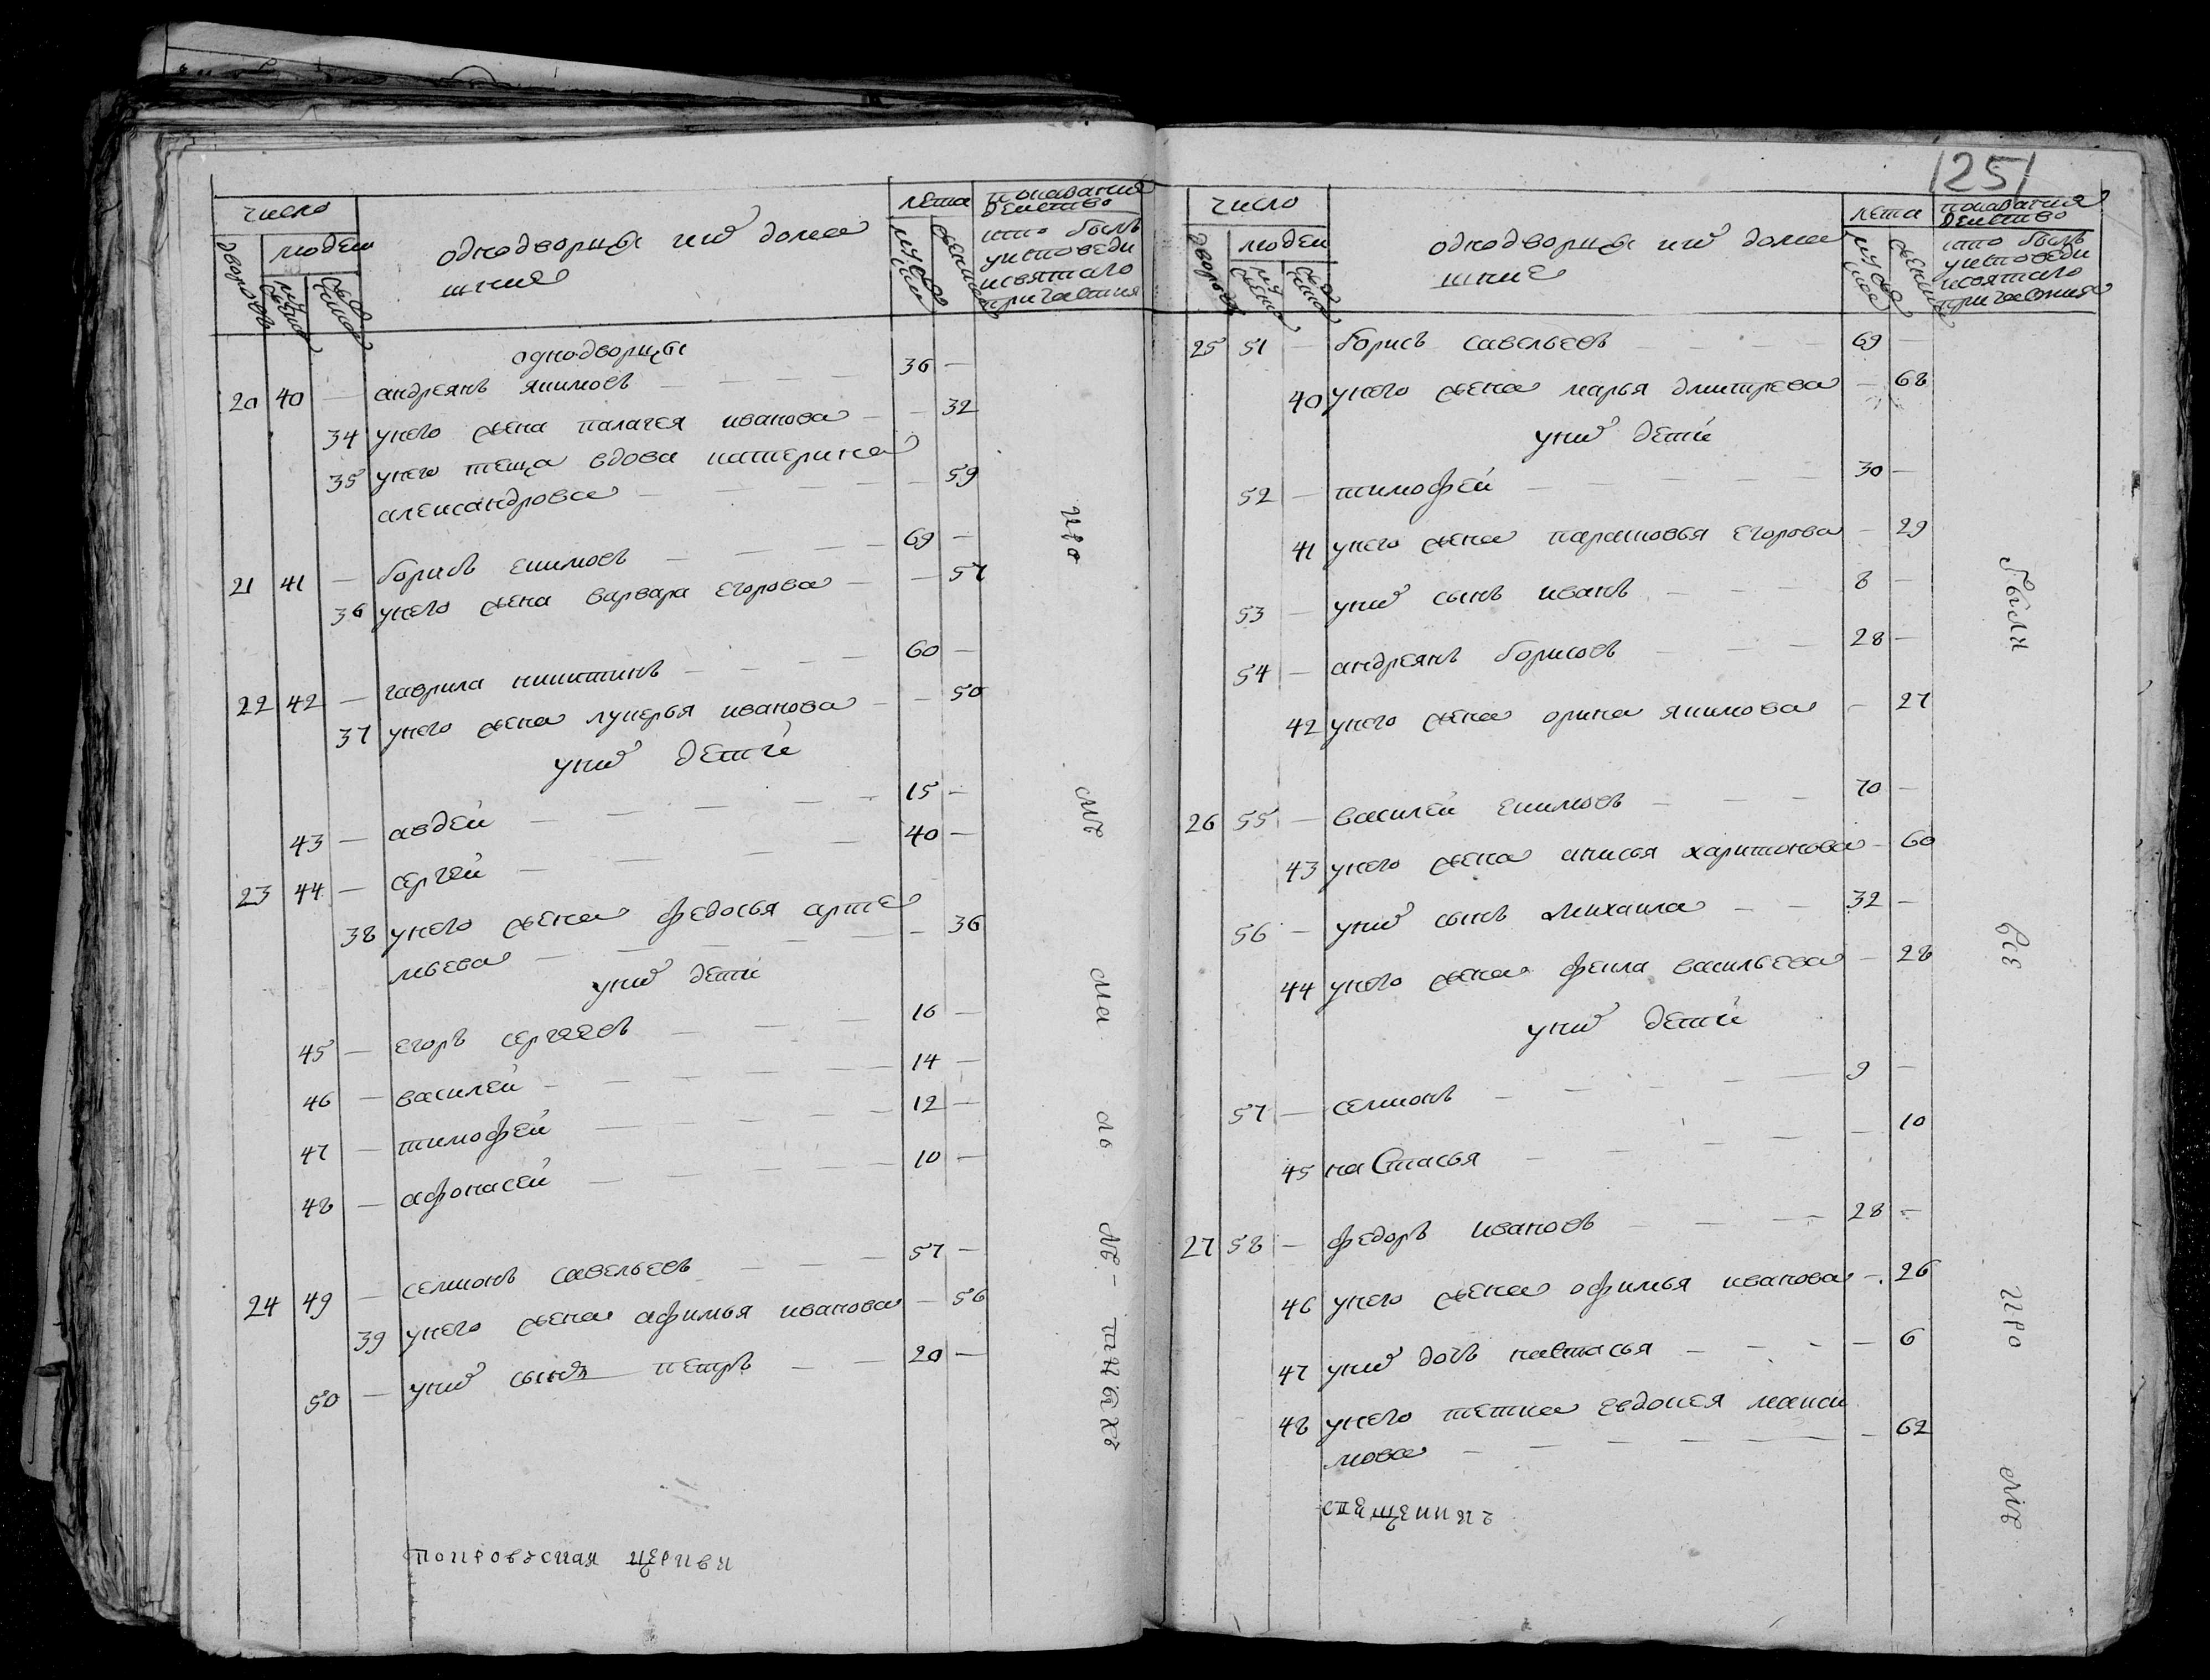 число
людеи
дворовъ
мужеска
женска
однодворцы и их дома
шние
лета
мужеска
женска
показание
действо
кто былъ
у исповеди
и святаго
причастия
однодворцы
20 40 — андреянъ якимовъ — — — — 36 —
34 у него жена палагея иванова — — 32
35 у него теща вдова катерина
александрова — — — — — 59
21 41 — борисъ екимовъ — — — — 69 —
36 у него жена варвара егорова — — 57
22 42 — гаврила никитинъ — — — — 60 —
37 у него жена лукерья иванова — — 50
у них дети
43 — авдей — — — — — 15 —
23 44 — сергей — — — — — 40 —
38 у него жена федосья арте
мьева — — — — — 36
у них дети
45 — егоръ сергеевъ — — — 16 —
46 — василей — — — — — 14 —
47 — тимофей — — — — — 12 —
48 — афонасей — — — — — 10 —
24 49 — семионъ савельевъ — — — 57 —
39 у него жена афимья иванова — 56
50 — у них сынъ петръ — — 20 —
покровская церкви
125
число
людеи
дворовъ
мужеска
женска
однодворцы и их дома
шние
лета
мужеска
женска
показание
действо
кто былъ
у исповеди
и святаго
причастия
25 51 — борисъ савельевъ — — — 69 —
40 у него жена марья дмитрева — 68
у них дети
52 — тимофей — — — — — 30 —
41 у него жена парасковья егорова — 29
53 — у них сынъ иванъ — — — 8 —
54 — андреянъ борисовъ — — — 28 —
42 у него жена орина якимова — 27
26 55 — василей екимовъ — — — 70 —
43 у него жена анисья харитонова — 60
56 — у них сынъ михаила — — 32 —
44 у него жена фекла васильева — 28
у них дети
57 — семионъ — — — — — 9 —
45 настасья — — — — — 10
27 58 — федоръ ивановъ — — — 28 —
46 у него жена офимья иванова — 26
47 у них дочь настасья — — — — 6
48 у него тетка евдокея макси
мова — — — — — — 62
были
все